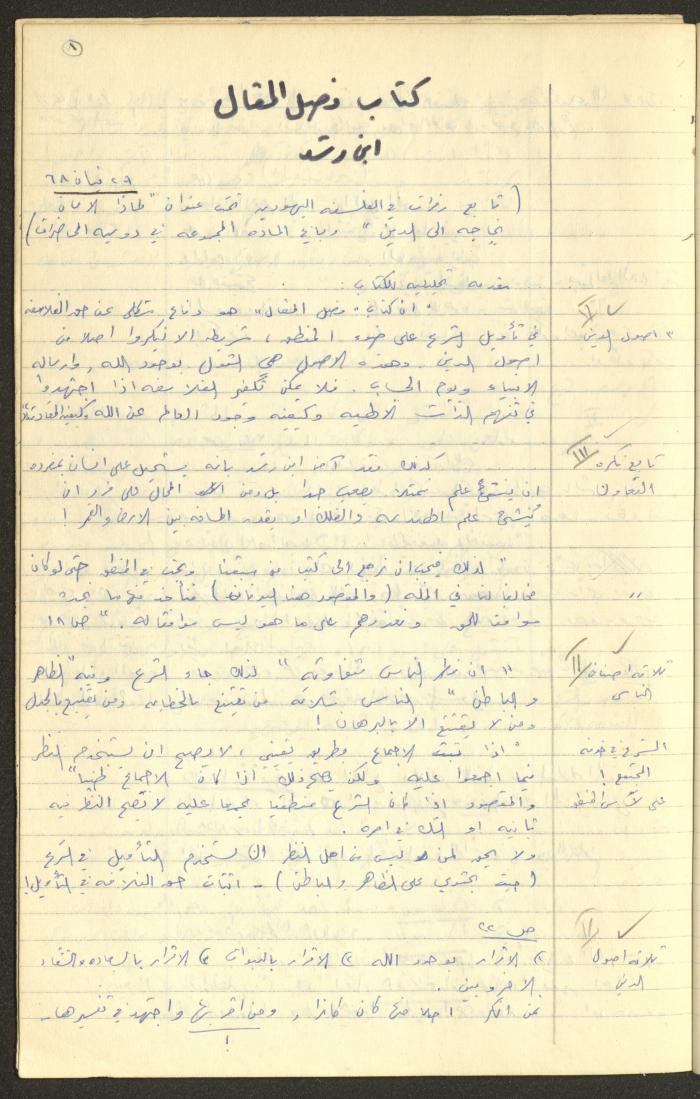 ٨
كتاب فصل المقال
ابن رشد
٢٩ نيسان ٦٨
( تابع قراءات في الفلسفة اليهودية تحت عنوان " لماذا الانسان
بحاجة الى الدين " وباقي المادة المجموعة في دوسيه المحاضرات )
مقدمة تحليلية للكتاب :
IV
" ان كتاب " فصل المقال " هو دفاع متكلم عن حق الفلاسفة
٣ اصول الدين
في تأويل الشرع على ضوء المنطق ، شريطة الا ينكروا اصلا من
اصول الدين . وهذه الاصول هي القول بوجود الله ، وارساله
الانبياء ويوم الحساب . فلا يمكن تكفير الفلاسفة اذا اجتهدوا
في تفهم الذات الالهية وكيفية وجود العالم عن الله وكيفية
III
تابع فكرة
كذلك فقد آمن ابن رشد بانه يستحيل على انسان بمفرده
التعاون
ان ينشئ علم فمثلا يصعب جدا بل ومن المحال على فرد ان
ينشئ علم الهندسة والفلك او يقدر المسافة بين الارض والقمر !
" لذلك فيجب ان نرجع الى كتب من سبقنا وبحث في المنطق حتى لو كان
"
مخالفا لنا في الملة ( والمقصود هنا اليونان ) فنأخذ منها ما نجده
موافقا للحق ونعذرهم على ما هو ليس موافقا له . " ص ١٨
II
ثلاثة اصناف
الناس
" ان فطر الناس متفاوتة " لذلك جاء الشرع وفيه " الظاهر
والباطن " الناس ثلاثة من يقتنع بالخطابة ومن يقتنع بالجدل
ومن لا يقتنع الا بالبرهان !
الشرع في خدمة
" اذا ثبت الاجماع بطريق يقيني ، لا يصح ان يستخدم النظر
المجتمع !
فيما اجمعوا عليه ولكن يصح ذلك اذا كان الاجماع ظنيا "
على اساس المنطق
والمقصود اذا كان الشرع منطقيا مجمعا عليه لا يصح النظر فيه
ثانية او الشك في امره .
ولا يجوز لمن هو ليس من اهل النظر ان يستخدم التأويل في الشرع
( حيث يحتوي على الظاهر والباطن ) - اثبات حق الفلاسفة في التأويل !
ص ٢٢
IV
ثلاثة اصول
١) الاقرار بوجود الله ٢) الاقرار بالنبوات ٣) الاقرار بالسعادة والشقاء
الدين
الاخرويين .
فمن انكر احداها كان كافرا ، ومن اقر بها واجتهد في تفسيرها -
!